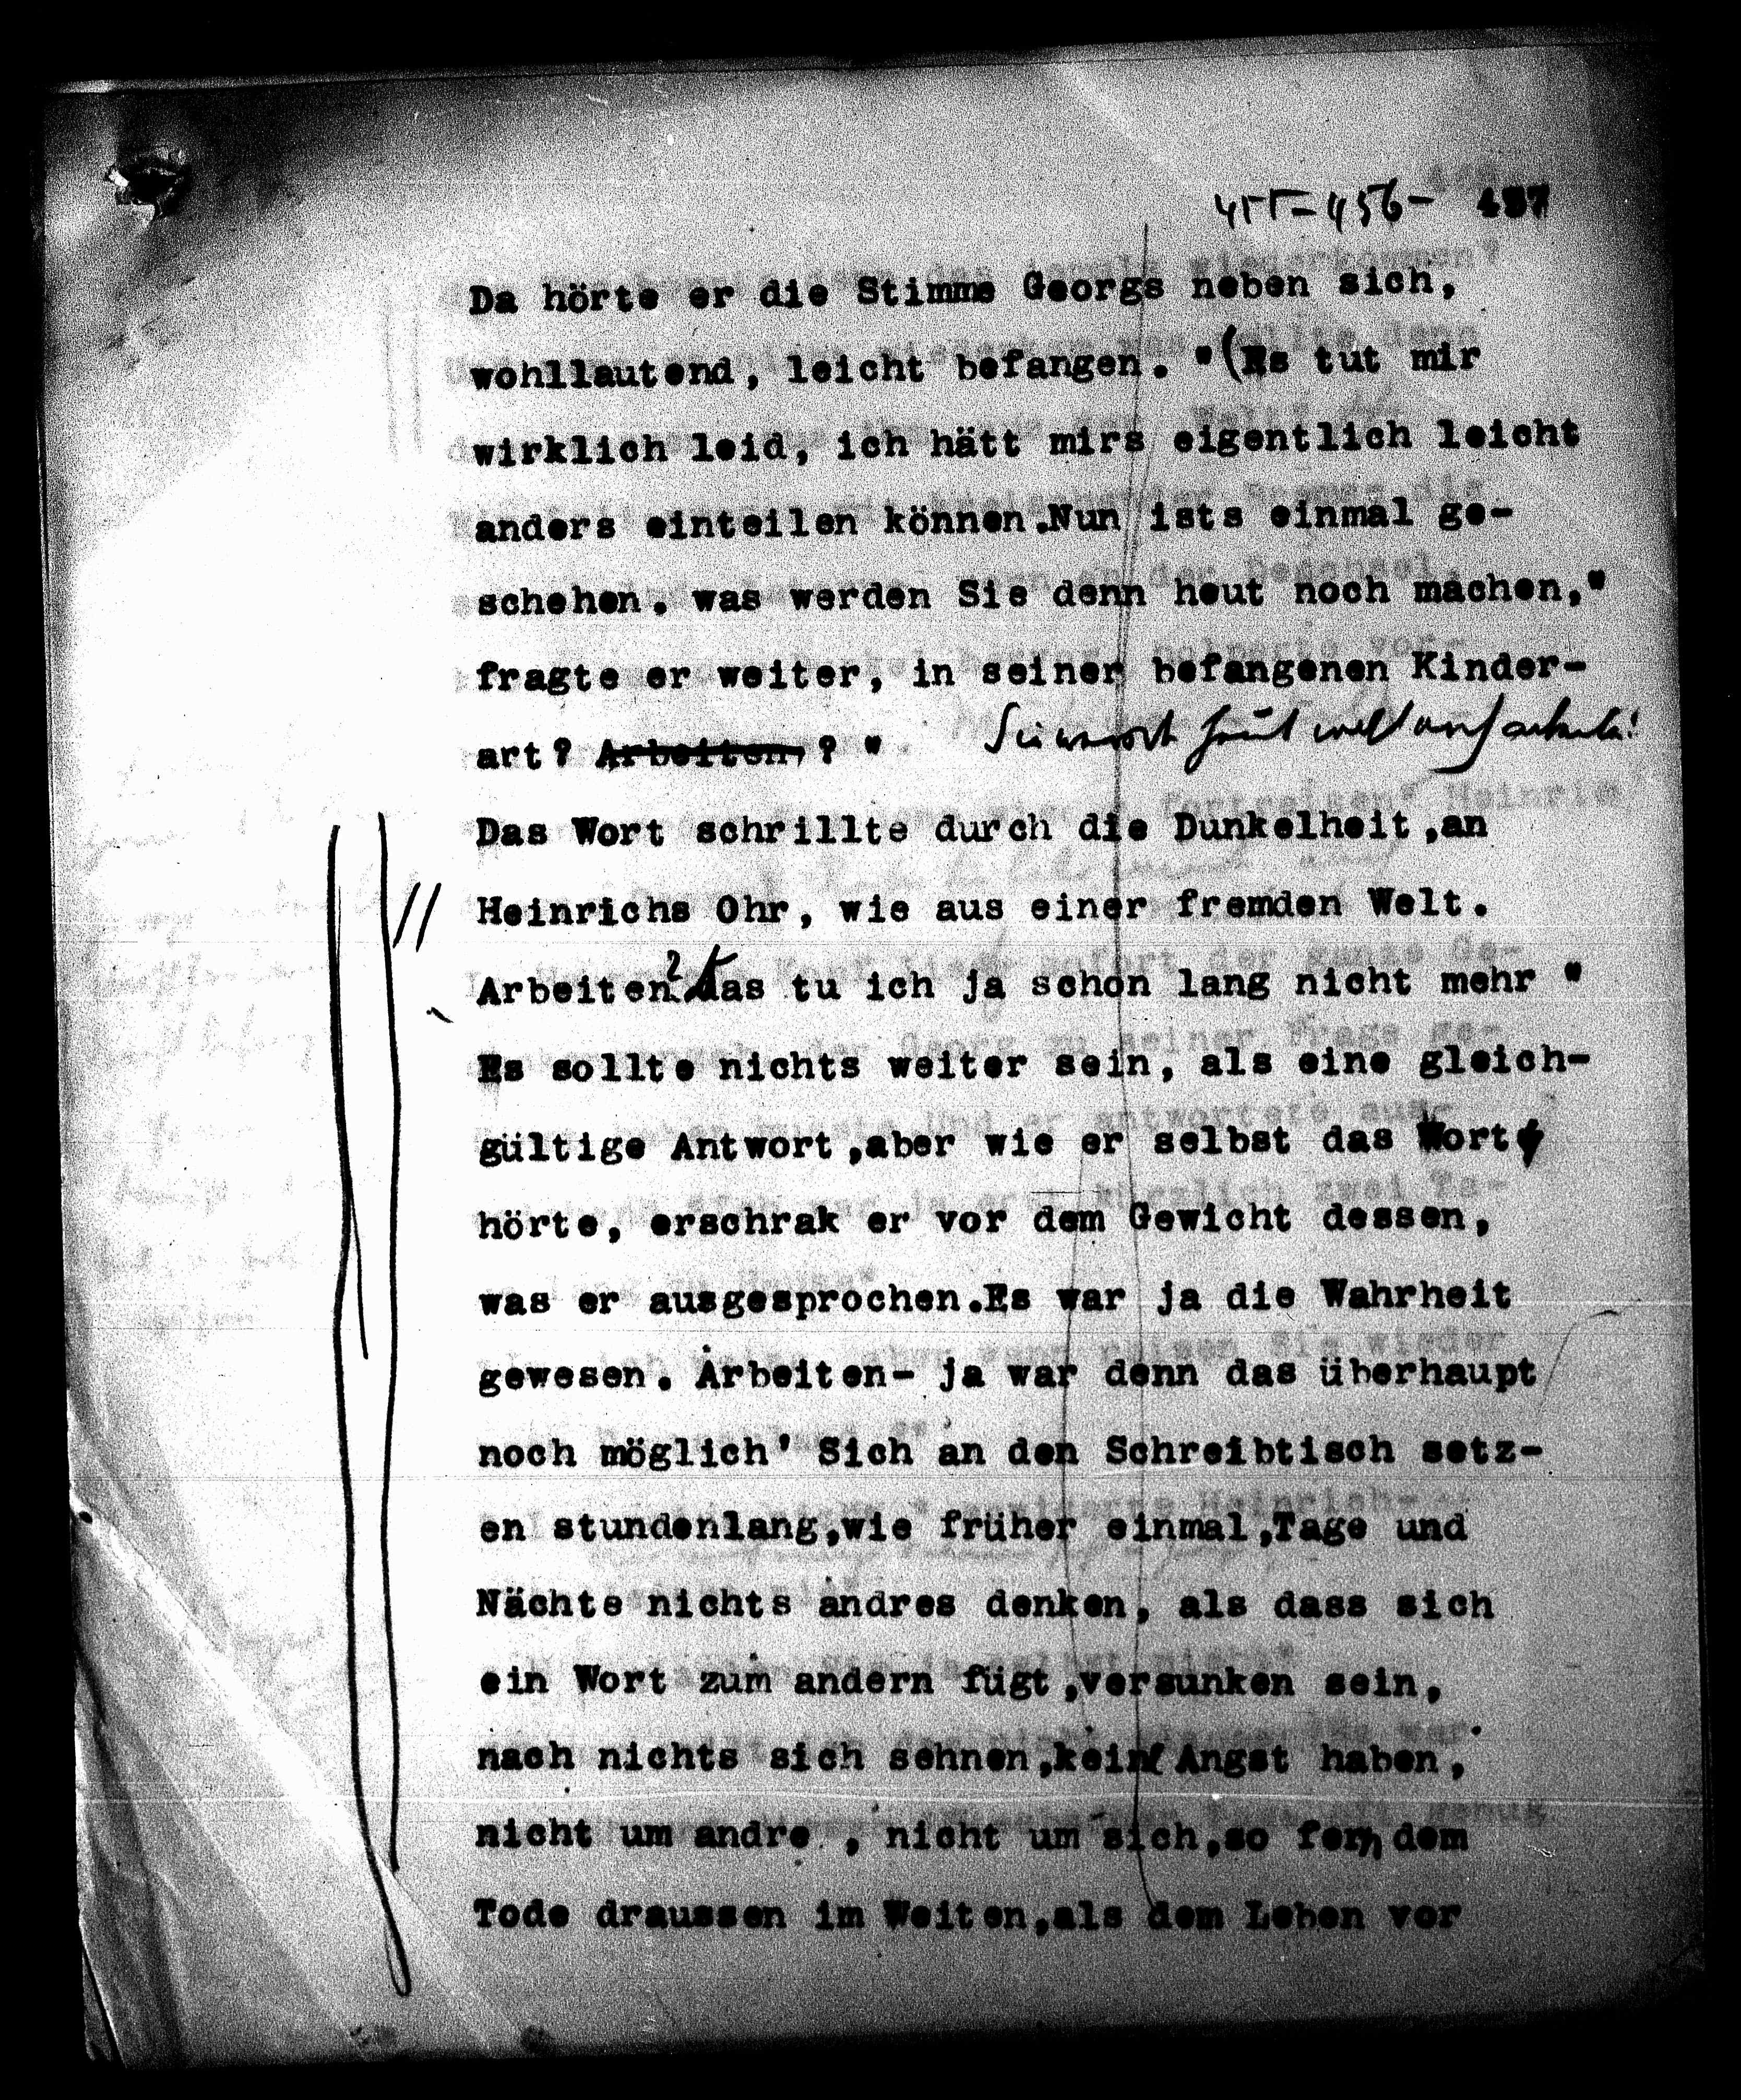 455-456- 457
Da hörte er die Stimme Georgs neben sich,
wohllautend, leicht befangen. "(Es tut mir
wirklich leid, ich hätt mirs eigentlich leicht
anders einteilen können.Nun ists einmal ge-
schehen. was werden Sie denn heut noch machen,"
fragte er weiter, in seiner befangenen Kinder-
art? Arbeiten, ? "
Das Wort schrillte durch die Dunkelheit ,an
Heinrichs Ohr, wie aus einer fremden Welt.
Arbeiten? das tu ich ja schon lang nicht mehr "
Es sollte nichts weiter sein, als eine gleich-
gültige Antwort ,aber wie er selbst das Wort
hörte, erschrak er vor dem Gewicht dessen,
was er ausgesprochen.Es war ja die Wahrheit
gewesen. Arbeiten- ja war denn das überhaupt
noch möglich' Sich an den Schreibtisch setz-
en stundenlang,wie früher einmal,Tage und
Nächte nichts andres denken, als dass sich
ein Wort zum andern fügt ,versunken sein,
nach nichts sich sehnen,kein Angst haben,
nicht um andre , nicht um sich,so fern dem
Tode draussen im Weiten,als dem Leben vor